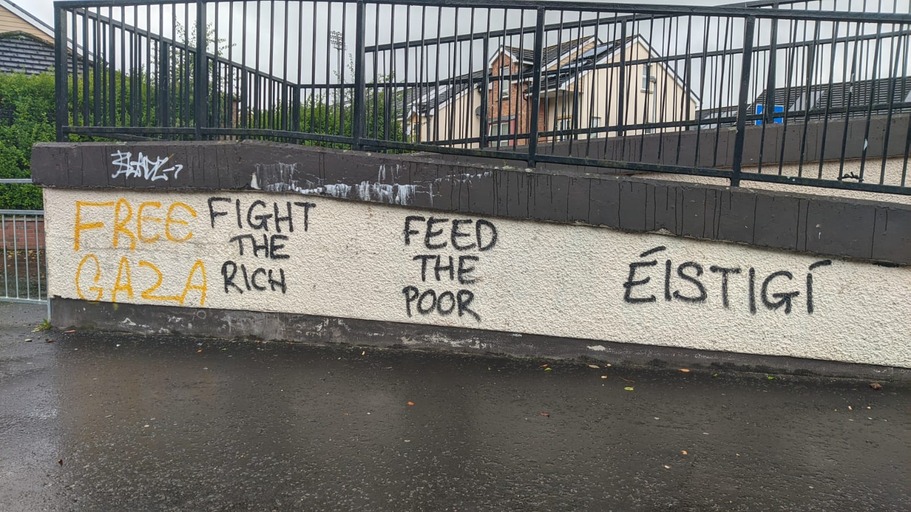 FREE
GAZA
FIGHT
THE
RICH
FEED
THE
POOR
ÉISTIGÍ